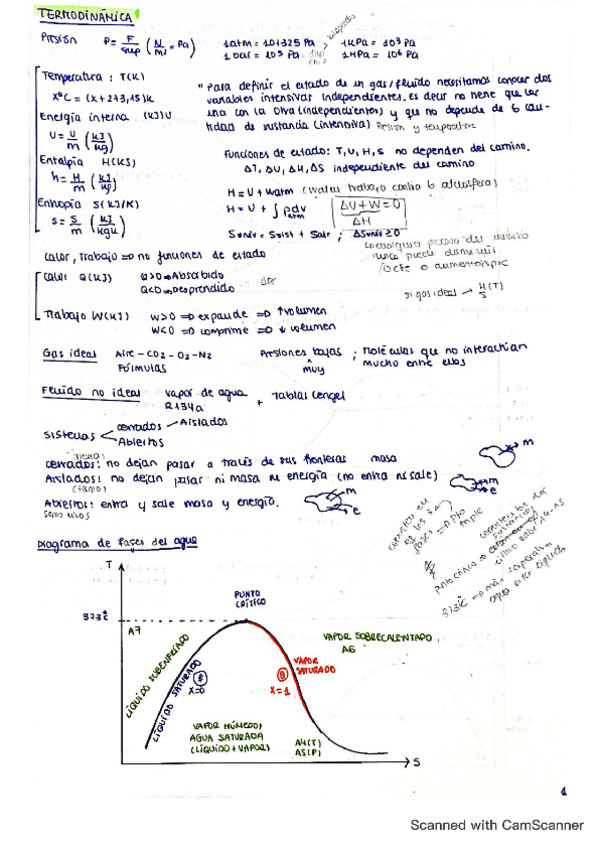 TERMODINÁMICA
Presión P = F/sup (N/m² = Pa) 1atm = 101325 Pa ; 1kPa = 10³ Pa
1 bar = 10⁵ Pa 1MPa = 10⁶ Pa
Temperatura : T(K)
xºC = (x + 273,15)K
Energía interna (kJ) U
u = U/m (kJ/kg)
Entalpía H(kJ)
h = H/m (kJ/kg)
Entropía S(kJ/K)
s = S/m (kJ/kgK)
"Para definir el estado de un gas/fluido necesitamos conocer dos
variables intensivas independientes. Es decir no tiene que ver
una con la otra (independientes) y que no depende de la can-
tidad de sustancia (intensiva) Presión y temperatura
Funciones de estado: T, U, H, S no dependen del camino.
ΔT, ΔU, ΔH, ΔS independiente del camino
H = U + Watm (Watm trabajo contra la atmósfera)
H = U + ∫ Patm dv ΔU + W = 0
ΔH
Suniv = Ssist + Salr ; ΔSuniv ≥ 0
Calor, Trabajo => no funciones de estado
Calor Q(kJ) Q>0 => Absorbido
Q<0 => Desprendido
si gas ideal → H(T)
Trabajo W(kJ) W>0 => expande => ↑volumen
W<0 => comprime => ↓ volumen
Gas ideal Aire - CO2 - O2 - N2 Presiones bajas ; Moléculas que no interactúan
Fórmulas muy mucho entre ellas
Fluido no ideal vapor de agua + Tablas Cengel
R134a
Sistemas cerrados - Aislados
Abiertos
cerrados: no dejan pasar a través de sus fronteras masa
m
Aislados: no dejan pasar ni masa ni energía (no entra ni sale)
(termo)
m
e
Abiertos: entra y sale masa y energía.
seres vivos
m
e
Diagrama de fases del agua
T
PUNTO
CRÍTICO
A7
LÍQUIDO SUBENFRIADO
LÍQUIDO SATURADO
x=0
VAPOR
SATURADO
x=1
VAPOR SOBRECALENTADO
A6
VAPOR HÚMEDO,
AGUA SATURADA
(LÍQUIDO + VAPOR)
A4(T)
A5(P)
S
1
Scanned with CamScanner